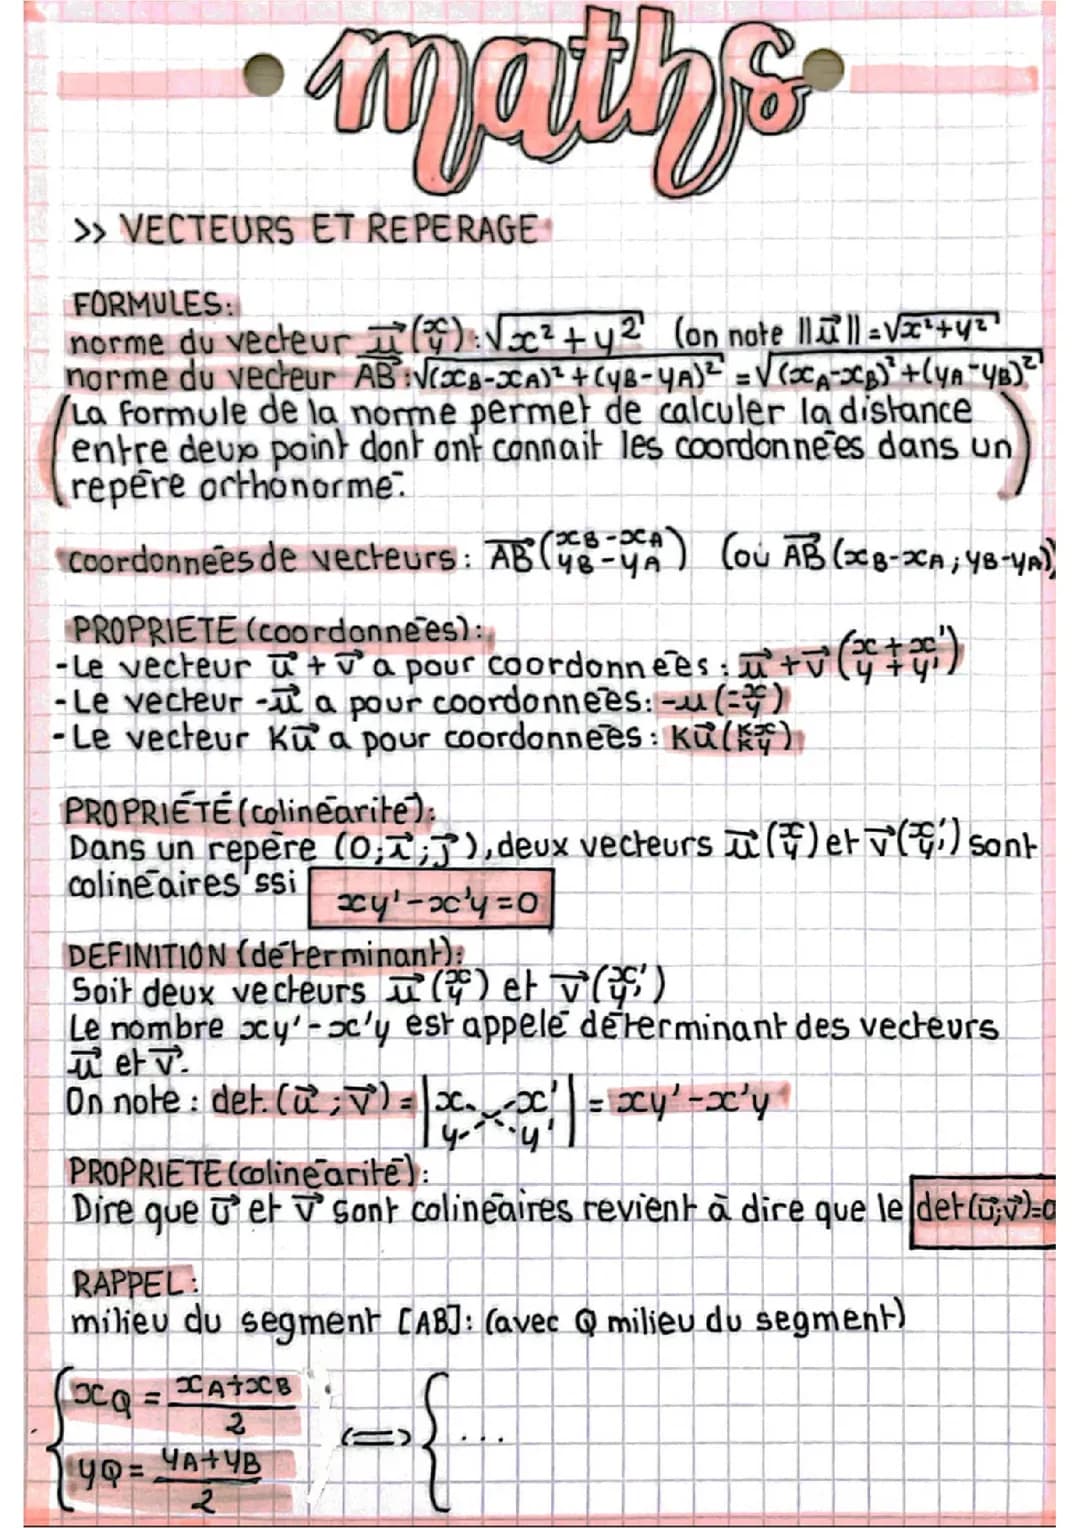 maths
>> VECTEURS ET REPERAGE
FORMULES:
norme du vecteur u⃗ (x y) : √x² + y² (on note ||u⃗|| = √x²+y²
norme du vecteur AB⃗ : √(xB-xA)² + (yB-yA)² = √(xA-xB)² + (yA-yB)²
(La formule de la norme permet de calculer la distance
entre deux point dont ont connait les coordonnées dans un
repère orthonormé.)
coordonnées de vecteurs : AB⃗ (xB-xA yB-yA) (ou AB⃗ (xB-xA ; yB-yA))
PROPRIETE (coordonnées) :
-Le vecteur u⃗ + v⃗ a pour coordonnées : u⃗ + v⃗ (x + x' y + y')
-Le vecteur -u⃗ a pour coordonnées : -u (-x -y)
-Le vecteur Ku⃗ a pour coordonnées : Ku⃗ (Kx Ky)
PROPRIÉTÉ (colinéarité) :
Dans un repère (O; i⃗ ; j⃗), deux vecteurs u⃗ (x y) et v⃗ (x' y') sont
colinéaires ssi xy' - x'y = 0
DEFINITION (déterminant) :
Soit deux vecteurs u⃗ (x y) et v⃗ (x' y')
Le nombre xy' - x'y est appelé déterminant des vecteurs
u⃗ et v⃗.
On note : det. (u⃗ ; v⃗) = |x x' y y'| = xy' - x'y
PROPRIETE (colinéarité) :
Dire que u⃗ et v⃗ sont colinéaires revient à dire que le det(u⃗;v⃗)=0
RAPPEL :
milieu du segment [AB] : (avec Q milieu du segment)
{ xQ = xA+xB / 2
yQ = yA+yB / 2 <=> { ...